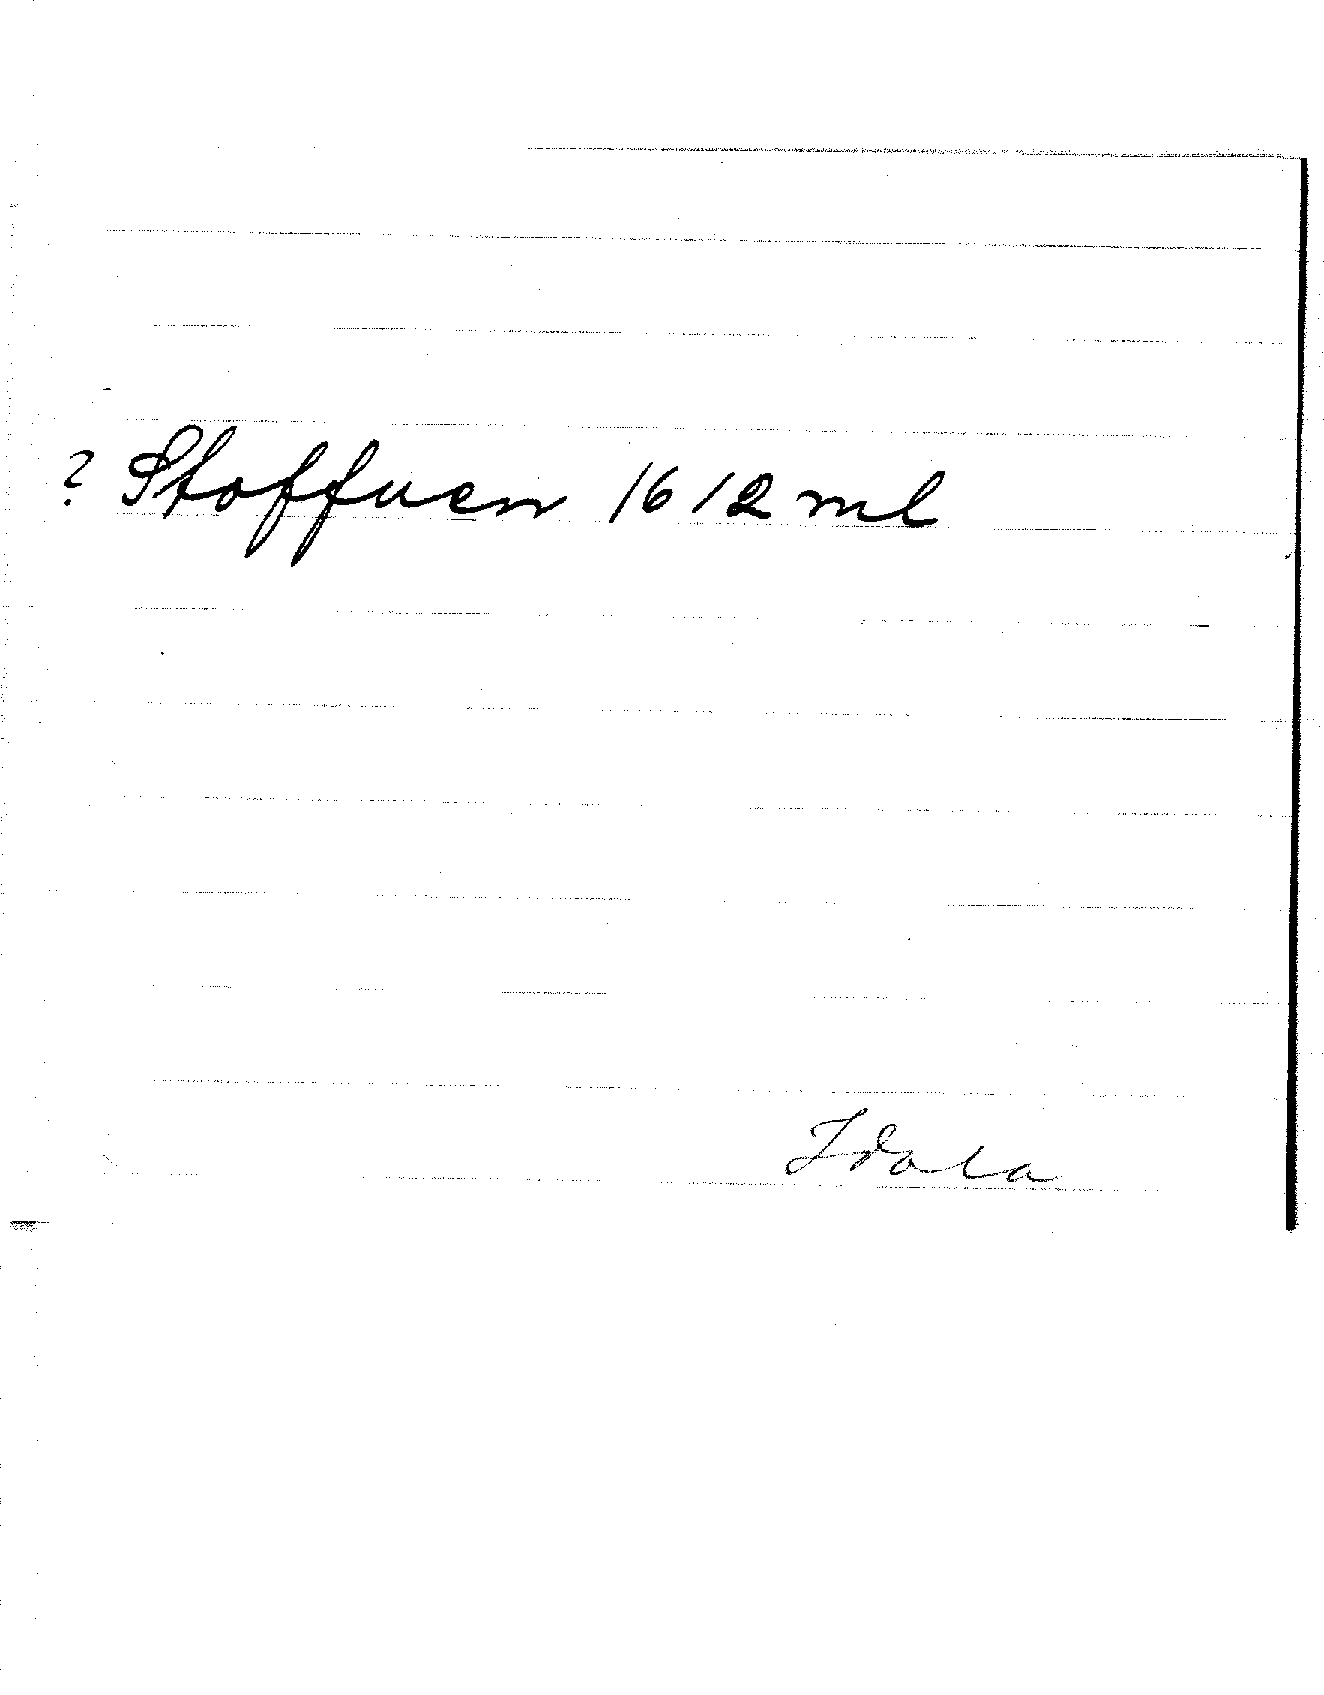 ? Stoffuen 1612 ml
Idala